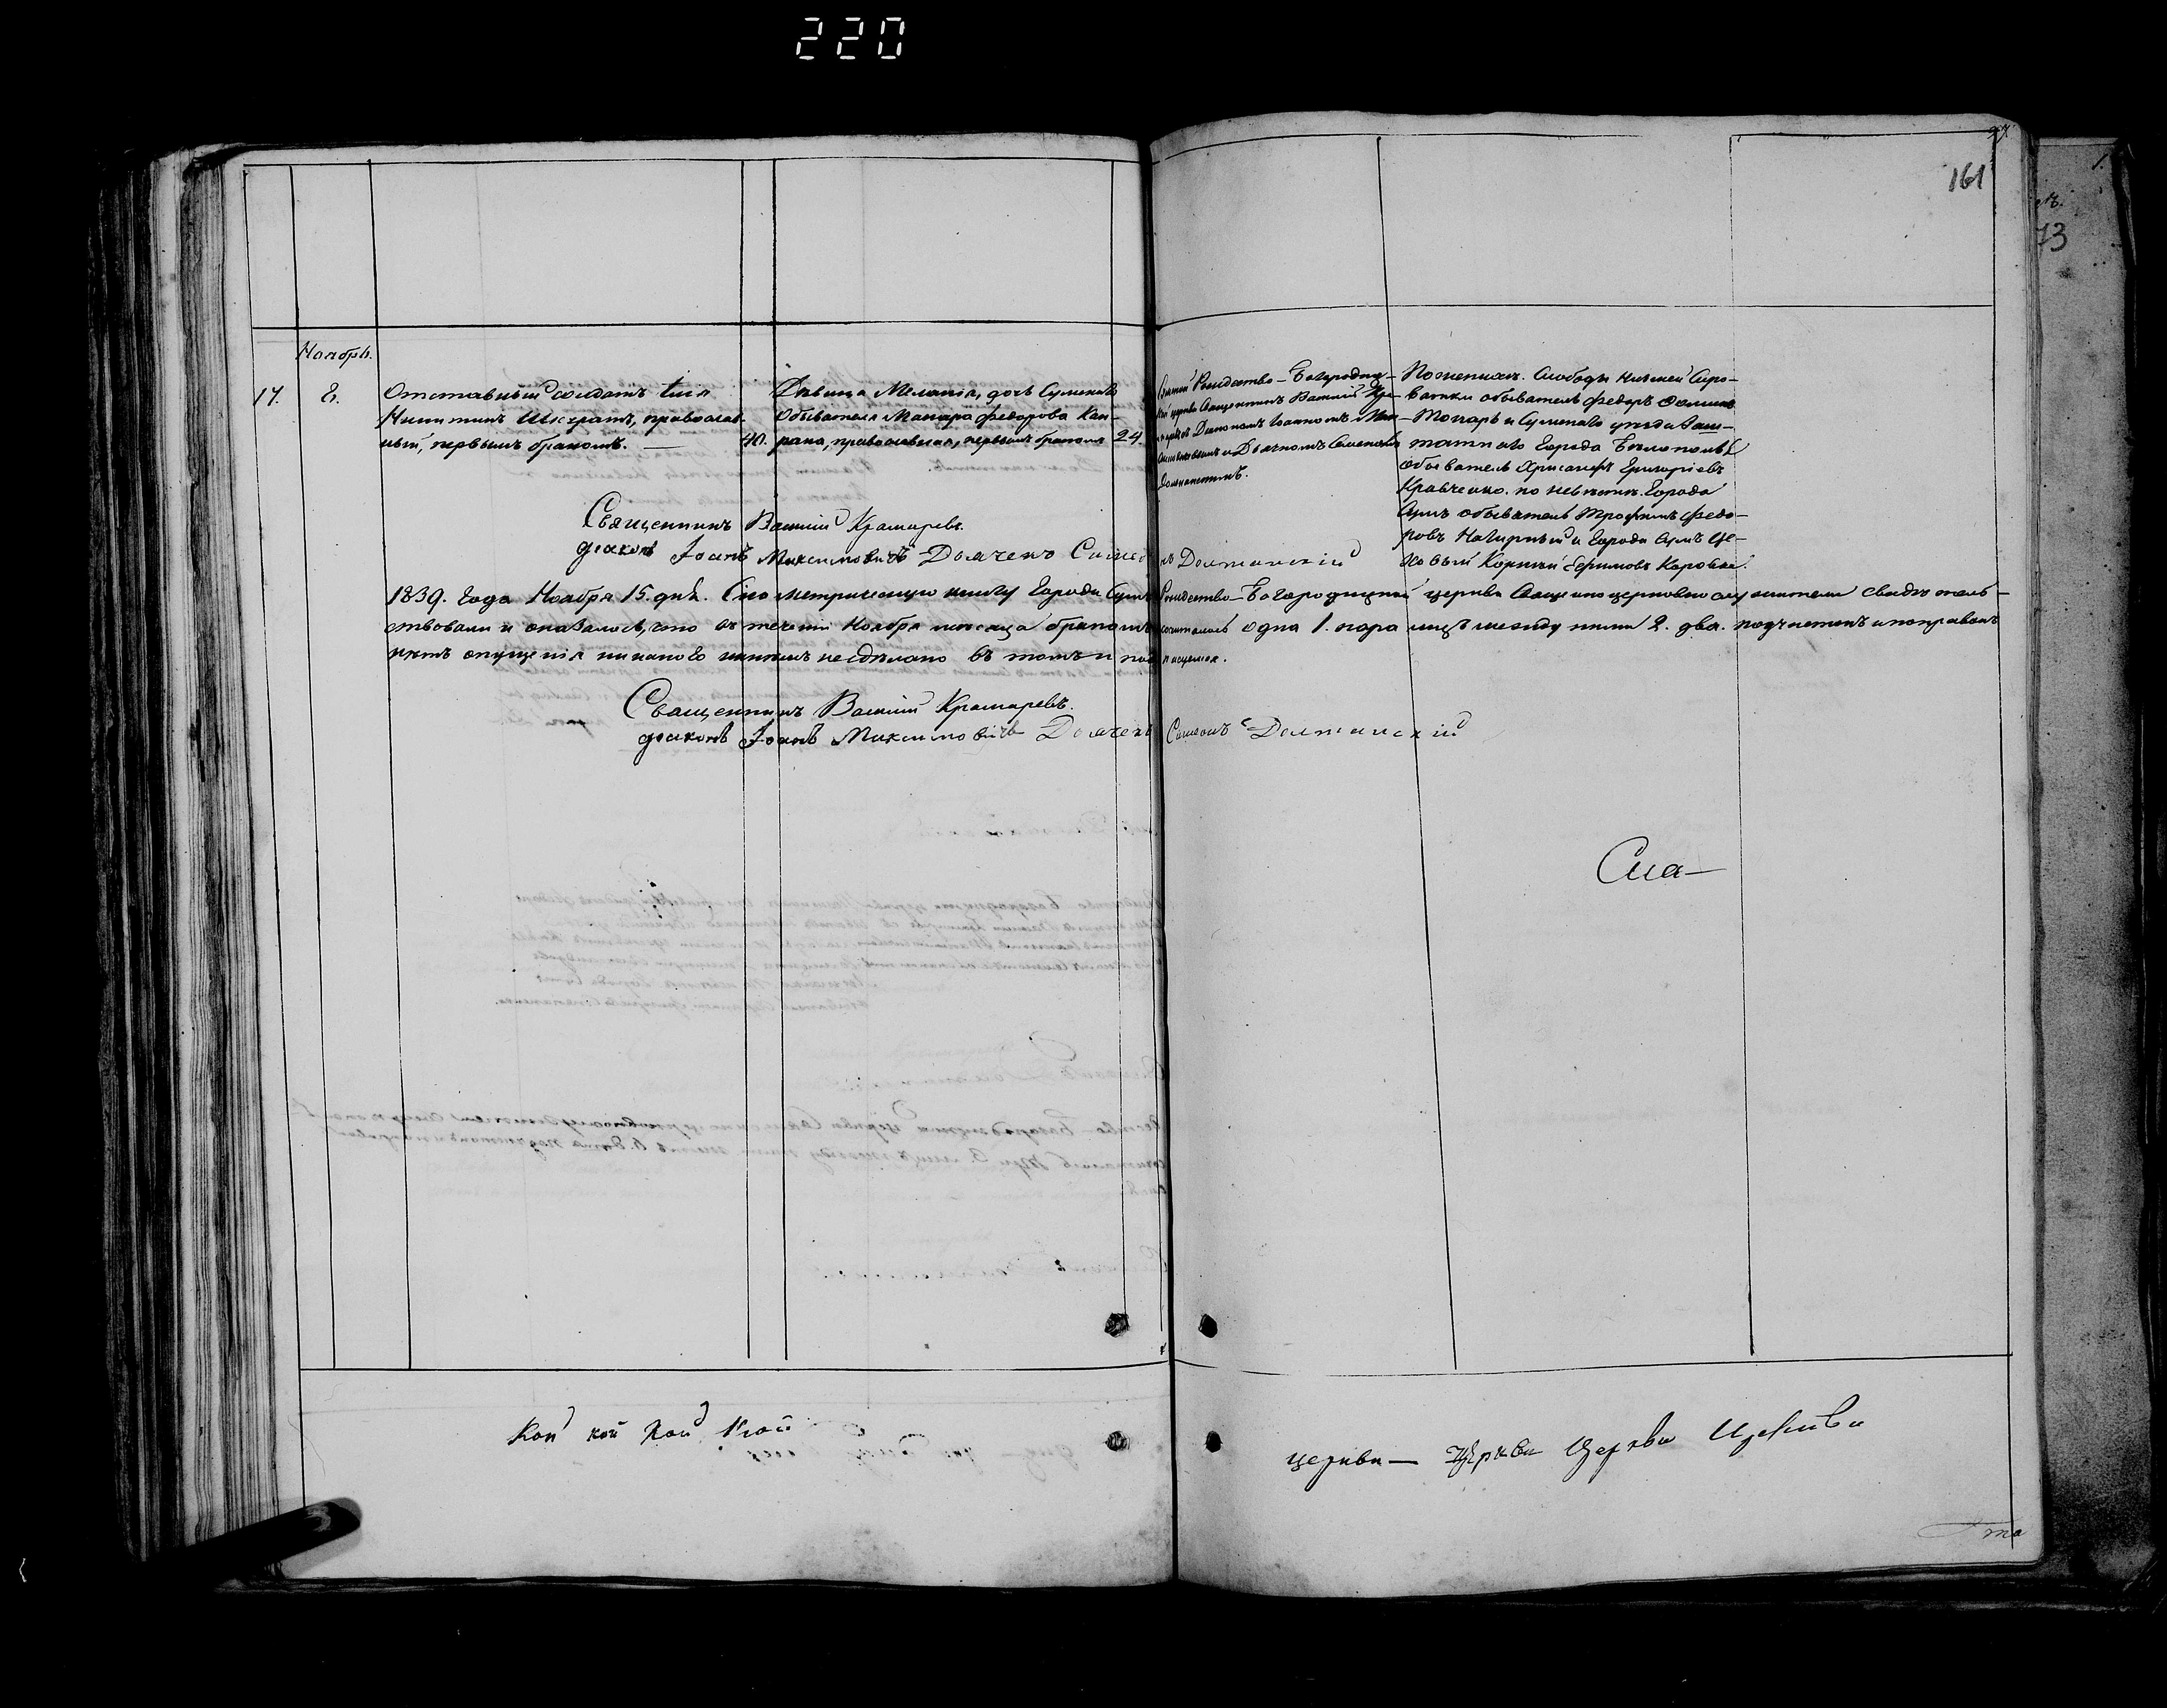 220
161
73
Ноябрь.
17.
8.
Отставный солдатъ Илія
Никитинъ Шкгратъ, православ-
ный, первымъ бракомъ. —
40.
Дѣвица Меланія, дочь Сумскаго
обывателя Макара Федорова Кап-
рана, православная, первымъ бракомъ
24.
Оной Рождество-Богородиц-
кой церкви Священникъ Василій Кра-
маревъ съ Діакономъ Іоанномъ Мак-
симовичемъ и Дьячкомъ Симеономъ
Должанскимъ.
По женихѣ. Слободы Нижней Сыро-
ватки обыватель Федоръ
и Сумскаго уѣзда Заш-
татнаго Города Бѣлополья
обыватель Хрисанфъ Григоріевъ
Кравченко. по невѣстѣ. Города
Сумъ обыватель Трофимъ Федо-
ровъ Нагирный и Города Сумъ Це-
ховый Корній Ефимовъ Коровка.
Священникъ Василій Крамаревъ
діаконъ Іоанъ Максимовичъ Дьячекъ Симеонъ Должанскій
1839. Года Ноября 15. дня. Сію метрическую книгу Города Сумъ Рождество-Богородицкой церкви Священноцерковнослужители свидѣтель-
ствовали и оказалось, что въ теченіи Ноября мѣсяца бракомъ сочталась одна 1. пара лицъ между ними 2. два. подчистокъ и поправокъ
нѣтъ опущенія никакого не сдѣлано въ томъ и подписуемся.
Священникъ Василій Крамаревъ.
діаконъ Іоанъ Максимовичъ Дьячекъ Симеонъ Должанскій
Сла-
Кой кой Кой Кой
церкви — Церкви Церкви Церкви